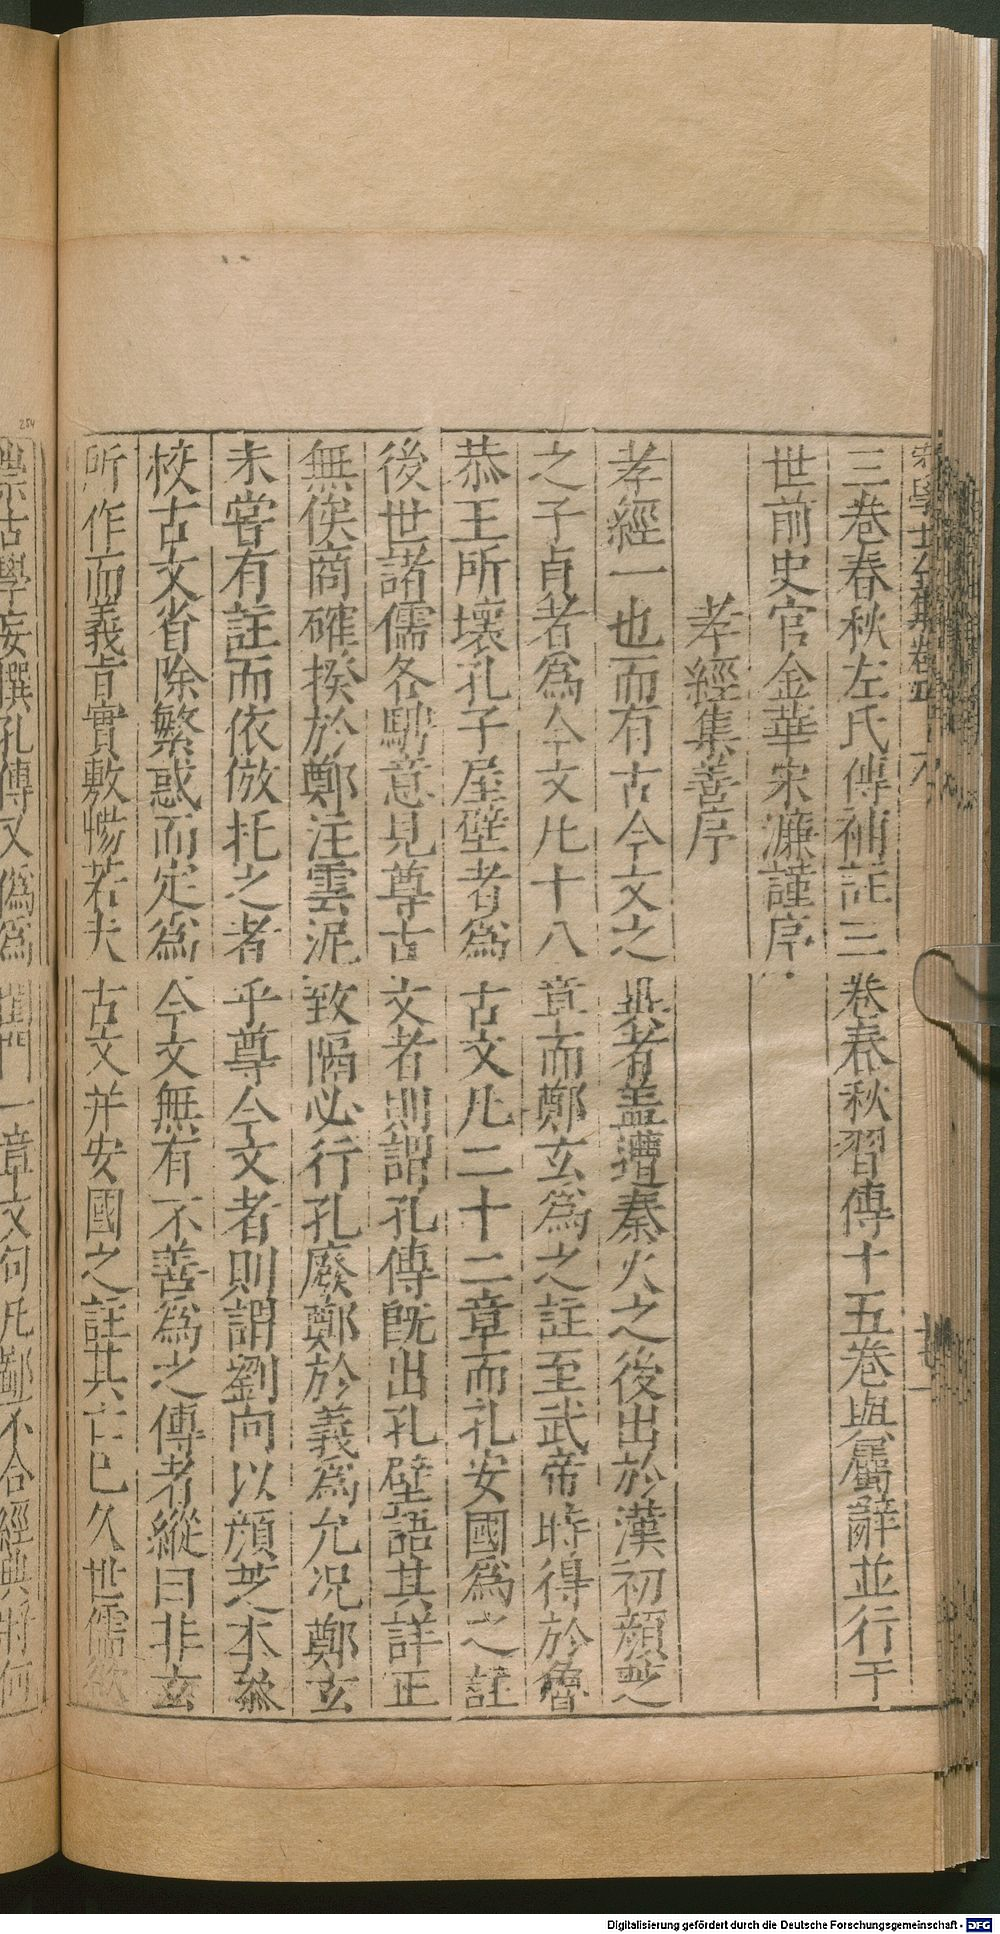 三卷春秋左氏傳補註三卷春秋習傳十五卷與屬辭並行于
世前史官金華宋濂謹序
孝經集善序
孝經一也而有古今文之異者盖遭秦火之後出於漢初顔芝
之子貞者爲今文凡十八章而鄭玄爲之註至武帝時得於魯
恭王所壞孔子屋壁者爲古文凡二十二章而孔安國爲之註
後世諸儒各騁意見尊古文者則謂孔傳旣出孔壁語其詳正
無俟商確揆於鄭注雲泥致隔必行孔廢鄭於義爲允况鄭玄
未甞有註而依倣托之者乎尊今文者則謂劉向以顔芝本叅
校古文省除繁惑而定爲今文無有不善爲之傳者縱曰非玄
所作而義旨實敷暢若夫古文并安國之註其亡已久世儒欲
崇古學妄撰孔傳又僞爲閨門一章文句凡鄙不合經典將何
254
Digitalisierung gefördert durch die Deutsche Forschungsgemeinschaft - DFG